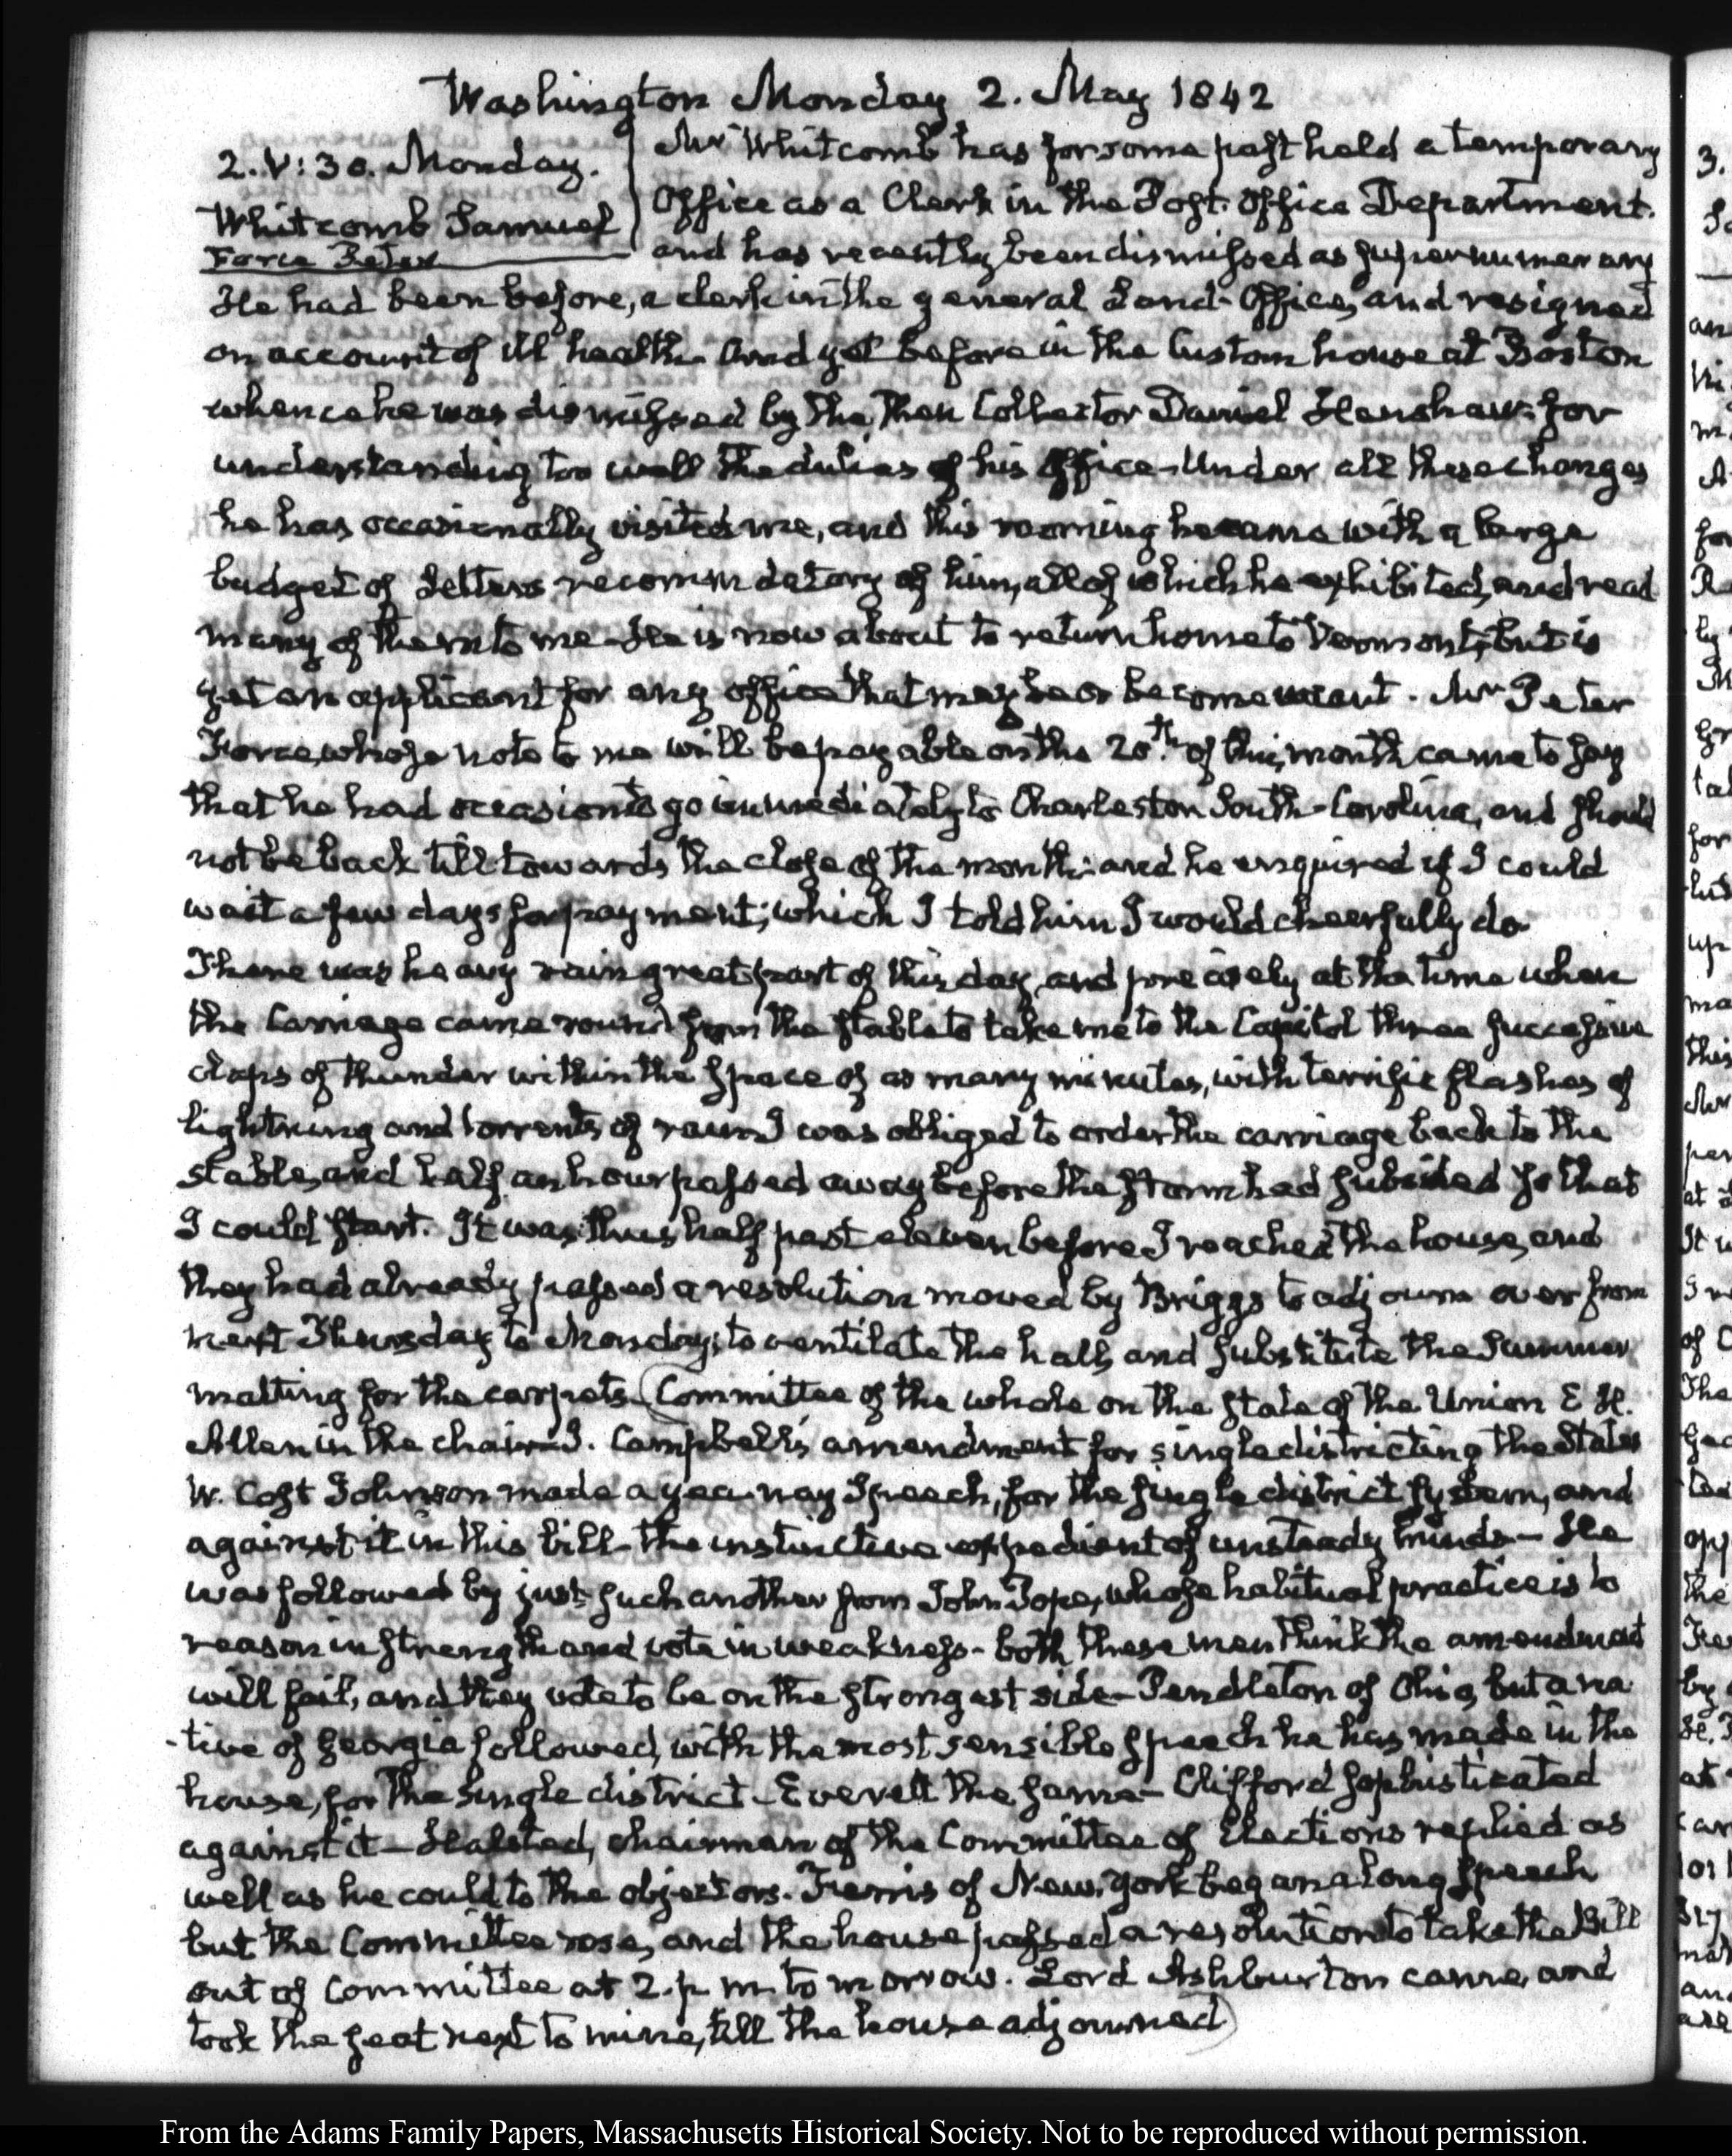 Washington Monday 2. May 1842
2. V: 30. Monday.
Whitcomb Samuel
Force Peter
Mr Whitcomb has for some past held a temporary
Office as a Clerk in the Post Office Department.
and has recently been dismissed as supernumerary
He had been before, a clerk in the general Land-Office, and resigned
on account of ill health. And yet before in the Custom house at Boston
whence he was dismissed by the then Collector Daniel Henshaw. for
understanding too well the duties of his Office—Under all these changes
he has occasionally visited me, and this morning he came with a large
budget of Letters recommendatory of him, all of which he exhibited, and read
many of them to me—He is now about to return home to Vermont, but is
yet an applicant for any office that may become vacant. Mr Peter
Force, whose note to me will be payable on the 20th of this month came to say
that he had occasion to go immediately to Charleston South-Carolina, and should
not be back till towards the close of the month: and he enquired if I could
wait a few days for payment; which I told him I would cheerfully do
There was heavy rain great part of this day, and precisely at the time when
the Carriage came round from the stable to take me to the Capitol three successive
claps of thunder within the space of as many minutes, with terrific flashes of
lightning and torrents of rain I was obliged to order the carriage back to the
stable, and half an hour passed away before the storm had subsided so that
I could start. It was thus half past eleven before I reached the house, and
they had already passed a resolution moved by Briggs to adjourn over from
next Thursday to Monday; to ventilate the hall, and substitute the Summer
matting for the carpets (Committee of the whole on the state of the Union E H.
Allen in the chair—J. Campbell's amendment for single districting the States
W. Cost Johnson made a yea-nay Speech, for the single district system, and
against it in this bill—the instinctive expedient of unsteady minds—He
was followed by just such another from John Pope, whose habitual practice is to
reason in strength and vote in weakness—both these men think the amendment
will fail, and they vote to be on the strongest side—Pendleton of Ohio, but a na
-tive of Georgia followed, with the most sensible speech he has made in the
house, for the single district—Everett the same—Clifford sophisticated
against it—Halsted, chairman of the Committee of Elections replied as
well as he could to the objectors. Ferris of New-York began a long speech
but the Committee rose, and the house passed a resolution to take the Bill
out of Committee at 2. p m. to morrow. Lord Ashburton came, and
took the seat next to mine, till the house adjourned)
From the Adams Family Papers, Massachusetts Historical Society. Not to be reproduced without permission.